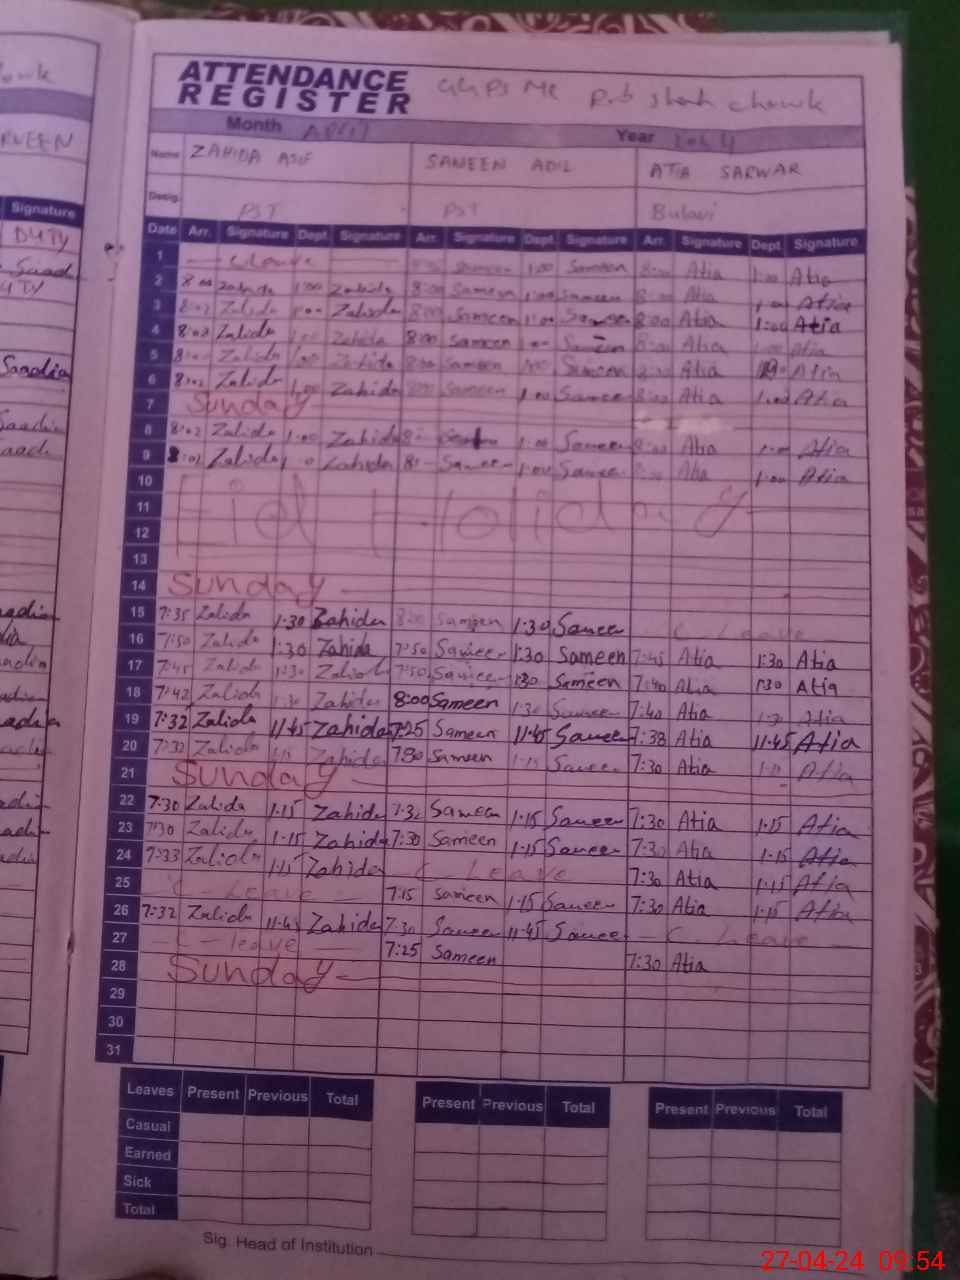 ATTENDANCE
REGISTER
GGPS
chowk
Month April Year
Name ZAHIDA ASIF SAMEEN ADIL ATIA SARWAR
Desig. PST PST
Date Arr. Signature Dept Signature Arr. Signature Dept. Signature Arr. Signature Dept. Signature
1 Leave Sameen 1:00 Sameen 8:00 Atia 1:00 Atia
2 8:00 Zahida 1:00 Zahida 8:00 Sameen 1:00 Sameen 8:00 Atia 1:00 Atia
3 8:02 Zahida 1:00 Zahida 8:00 Sameen 1:00 Sameen 8:00 Atia 1:00 Atia
4 8:02 Zahida 1:00 Zahida 8:00 Sameen 1:00 Sameen 8:00 Atia 1:00 Atia
5 Zahida 1:00 Zahida 8:00 Sameen Sameen 8:00 Atia Atia
6 8:02 Zahida 1:00 Zahida 8:00 Sameen 1:00 Sameen 8:00 Atia 1:00 Atia
7 Sunday
8 8:02 Zahida 1:00 Zahida 1:00 Sameen 8:00 Atia 1:00 Atia
9 8:02 Zahida Zahida Sameen 1:00 Sameen Atia 1:00 Atia
10
11 Eid Holiday
12
13
14 Sunday
15 7:35 Zahida 1:30 Zahida 8:00 Sameen 1:30 Sameen C Leave
16 7:50 Zahida 1:30 Zahida 7:50 Sameen 1:30 Sameen 7:45 Atia 1:30 Atia
17 7:45 Zahida 1:30 Zahida 7:50 Sameen 1:30 Sameen 7:40 Atia 1:30 Atia
18 7:42 Zahida 1:30 Zahida 8:00 Sameen 1:30 Sameen 7:40 Atia Atia
19 7:32 Zahida 11:45 Zahida 7:25 Sameen 11:45 Sameen 7:38 Atia 11:45 Atia
20 7:32 Zahida Zahida 7:30 Sameen 1:15 Sameen 7:30 Atia Atia
21 Sunday
22 7:30 Zahida 1:15 Zahida 7:32 Sameen 1:15 Sameen 7:30 Atia 1:15 Atia
23 7:30 Zahida 1:15 Zahida 7:30 Sameen 1:15 Sameen 7:30 Atia 1:15 Atia
24 7:33 Zahida 1:15 Zahida C Leave 7:30 Atia 1:15 Atia
25 C - Leave 7:15 Sameen 1:15 Sameen 7:30 Atia 1:15 Atia
26 7:32 Zahida 11:45 Zahida 7:30 Sameen 11:45 Sameen C. Leave
27 C - leave 7:25 Sameen 7:30 Atia
28 Sunday
29
30
31
Leaves Present Previous Total Present Previous Total Present Previous Total
Casual
Earned
Sick
Total
Sig. Head of Institution
27-04-24 09:54
Signature
DUTY
Saadia